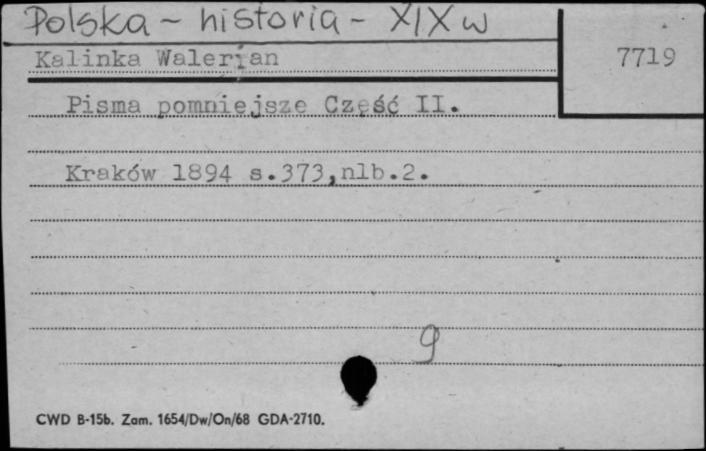 Polska - historia - XIX w
Kalinka Walerjan
7719
Pisma pomniejsze Część II.
Kraków 1894 s.373,nlb.2.
9
CWD B-15b. Zam. 1654/Dw/On/68 GDA-2710.